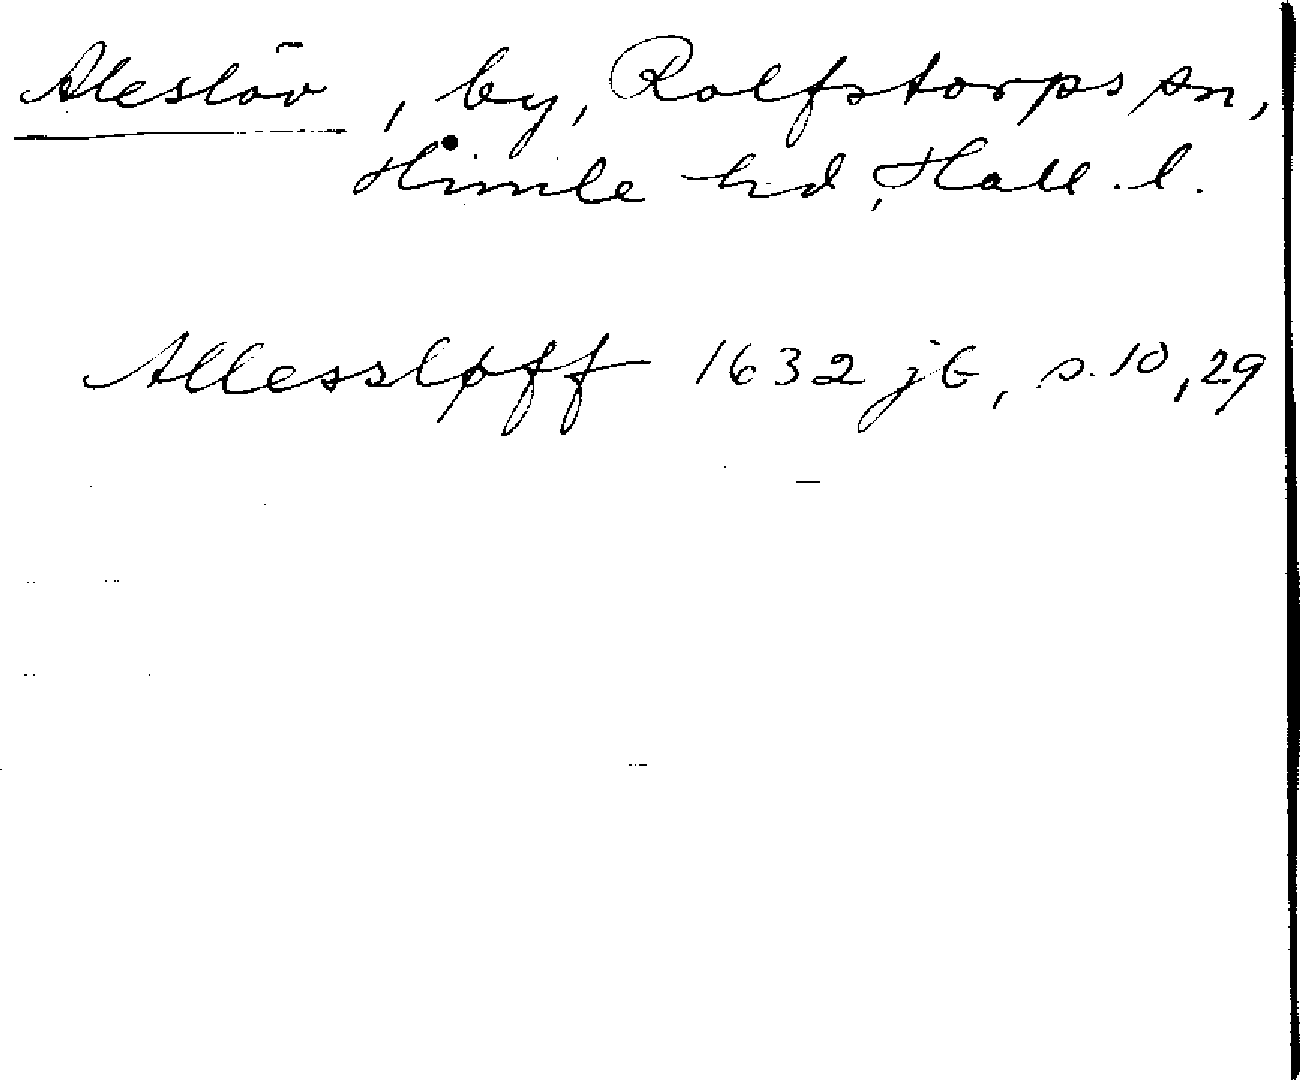 Aleslöv, by, Rolfstorps sn,
Himle hd, Hall. l.
Allessløff 1632 jb, s. 10, 29